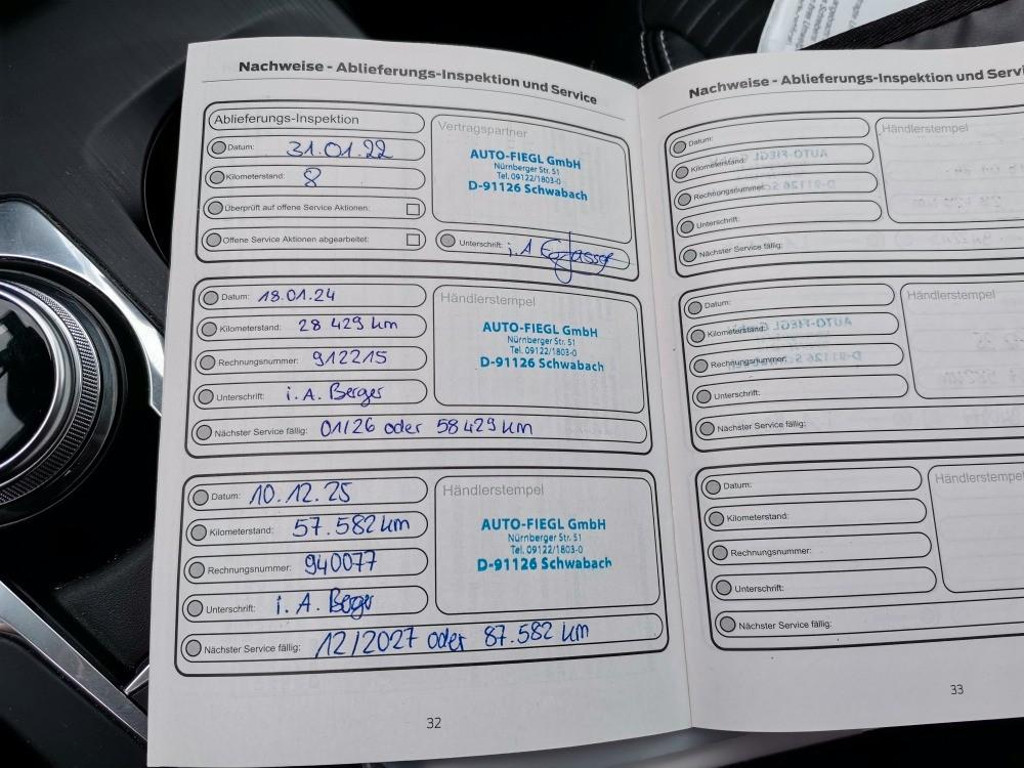 Nachweise - Ablieferungs-Inspektion und Service
Ablieferungs-Inspektion
Datum: 31.01.22
Kilometerstand: 8
Überprüft auf offene Service Aktionen:
Offene Service Aktionen abgearbeitet:
Vertragspartner
AUTO-FIEGL GmbH
Nürnberger Str. 51
Tel. 09122/1803-0
D-91126 Schwabach
Unterschrift: i.A
Datum: 18.01.24
Kilometerstand: 28 429 km
Rechnungsnummer: 912215
Unterschrift: i. A. Berger
Nächster Service fällig: 01/26 oder 58 429 km
Händlerstempel
AUTO-FIEGL GmbH
Nürnberger Str. 51
Tel. 09122/1803-0
D-91126 Schwabach
Datum: 10.12.25
Kilometerstand: 57.582 km
Rechnungsnummer: 940077
Unterschrift: i. A. Berger
Nächster Service fällig: 12/2027 oder 87.582 km
Händlerstempel
AUTO-FIEGL GmbH
Nürnberger Str. 51
Tel. 09122/1803-0
D-91126 Schwabach
32
Nachweise - Ablieferungs-Inspektion und Servi
Datum:
Kilometerstand:
Rechnungsnummer:
Unterschrift:
Nächster Service fällig:
Händlerstempel
Datum:
Kilometerstand:
Rechnungsnummer:
Unterschrift:
Nächster Service fällig:
Händlerstempel
Datum:
Kilometerstand:
Rechnungsnummer:
Unterschrift:
Nächster Service fällig:
Händlerstempel
33